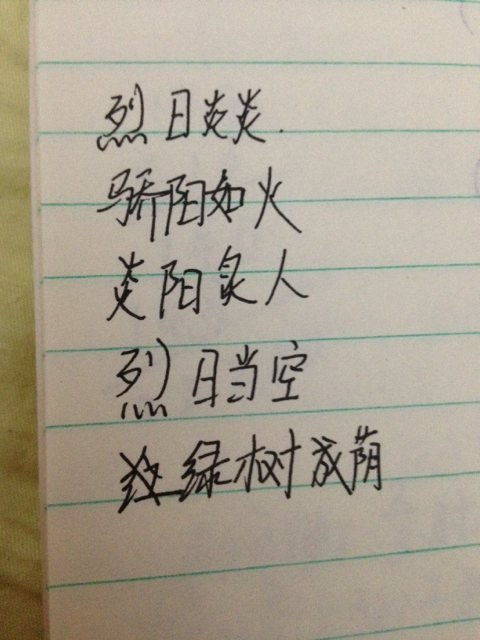 烈日炎炎.
骄阳如火
炎阳炙人
烈日当空
绿树成荫